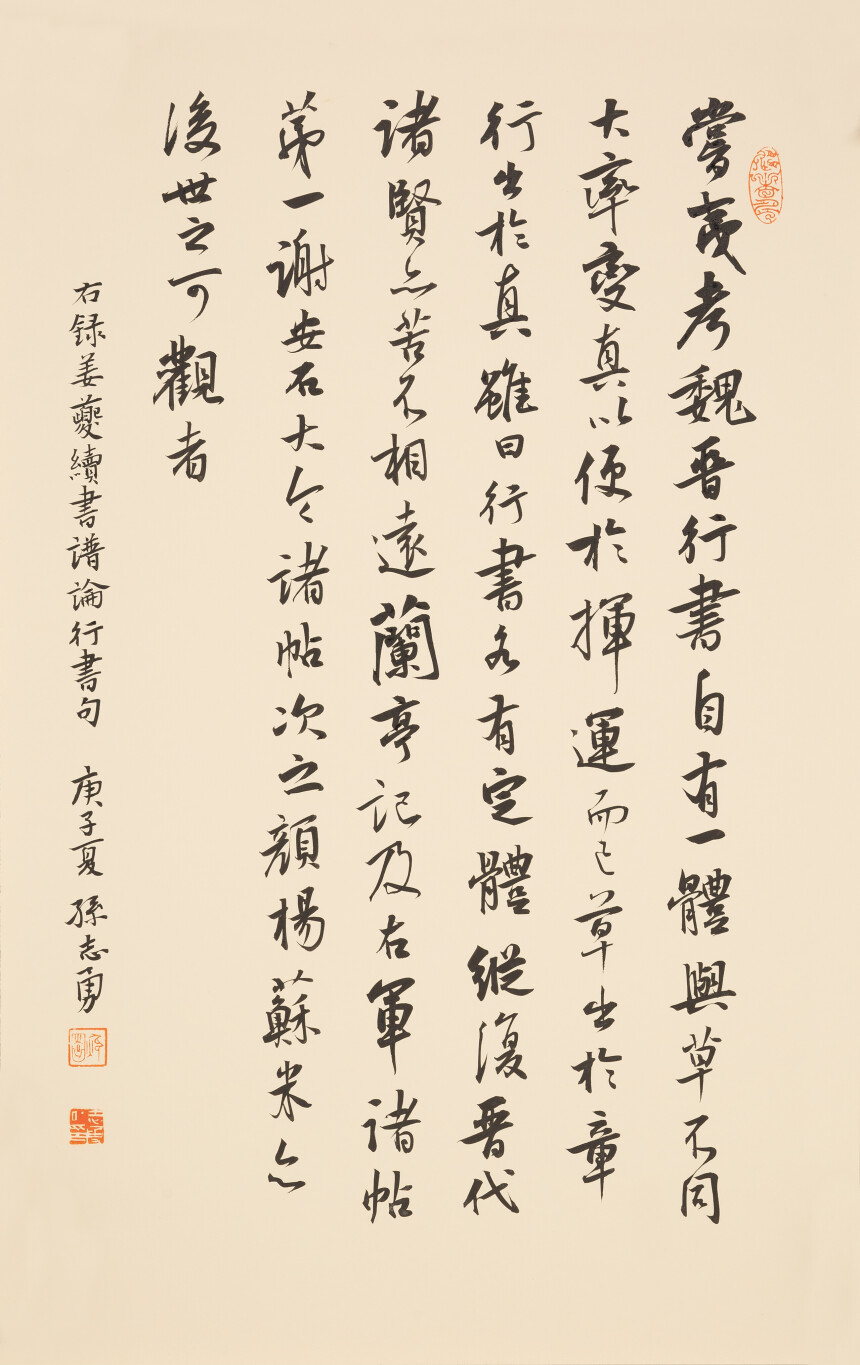 嘗夐考魏晉行書自有一體與草不同
大率變真以便於揮運而已草出於章
行出於真雖曰行書各有定體縱復晉代
諸賢亦苦不相遠蘭亭記及右軍諸帖
第一謝安石大令諸帖次之顏楊蘇米亦
後世之可觀者
右録姜夔續書譜論行書句 庚子夏 孫志勇